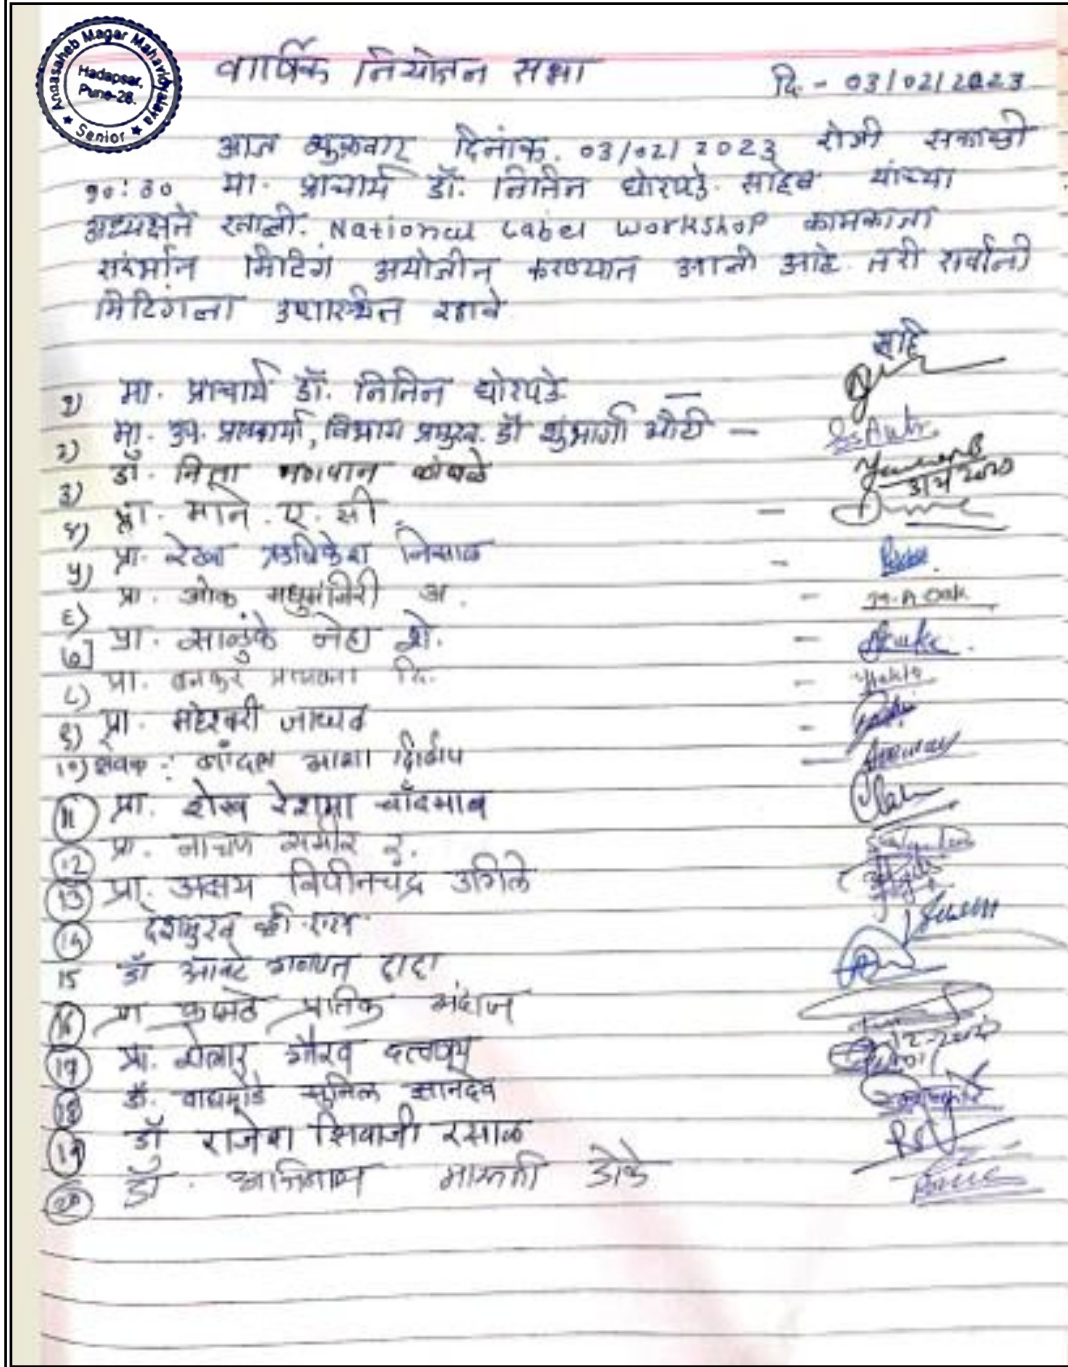 Annasaheb Magar Mahavidyalaya
Hadapsar,
Pune-28.
★ Senior ★
वार्षिक नियोजन सभा
दि. - 03/02/2023
आज शुक्रवार दिनांक. 03/02/2023 रोजी सकाळी
१०:३० मा. प्राचार्य डॉ. नितिन घोरपडे. साहेब यांच्या
अध्यक्षते खाली. National Label Workshop कामकाजा
संदर्भात मिटिंग अयोजीत करण्यात आली आहे. तरी सर्वांनी
मिटिंगला उपास्थित रहावे
साहि
१) मा. प्राचार्य डॉ. नितिन घोरपडे. —
२) मा. उप. प्राचार्या, विभाग प्रमुख. डॉ शुभांगी औटी —
३) डॉ. निता भगवान कांबळे
४) प्रा. माने. ए. सी. —
५) प्रा. रेखा ऋषिकेश निसाळ -
६) प्रा. ओक मधुमंजिरी अ. - M.A Oak
७] प्रा. साळुंके नेहा शे. -
८) प्रा. बनकर दि. -
९) प्रा. महेश्वरी जाधव -
१०) सेवक : आशा दिलीप —
11 प्रा. शेख रेशमा चाँदभाब
12 प्रा. समीर र.
13 प्रा. अक्षय विपीनचंद्र उगिले
14 देशमुख व्ही.एस.
15 डॉ आवटे गणपत दादा
16 प्रा कामठे प्रतिक
17 प्रा. शेलार गौरव दत्तात्रय
18 डॉ. वाघमोडे सुनिल ज्ञानदेव
19 डॉ राजेश शिवाजी रसाळ
20 डॉ. मारुती डोके